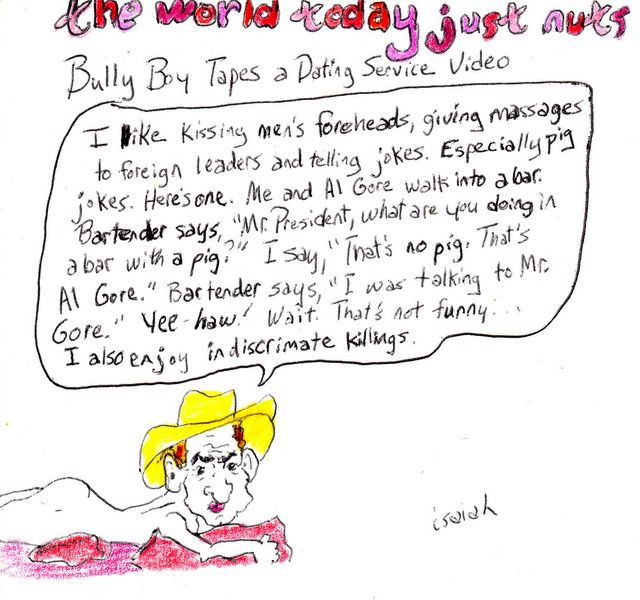 the world today just nuts
Bully Boy Tapes a Dating Service Video
I like kissing men's foreheads, giving massages
to foreign leaders and telling jokes. Especially pig
jokes. Here's one. Me and Al Gore walk into a bar.
Bartender says, "Mr. President, what are you doing in
a bar with a pig?" I say, "That's no pig. That's
Al Gore." Bartender says, "I was talking to Mr.
Gore." Yee-haw! Wait. That's not funny...
I also enjoy indiscrimate killings.
isaiah